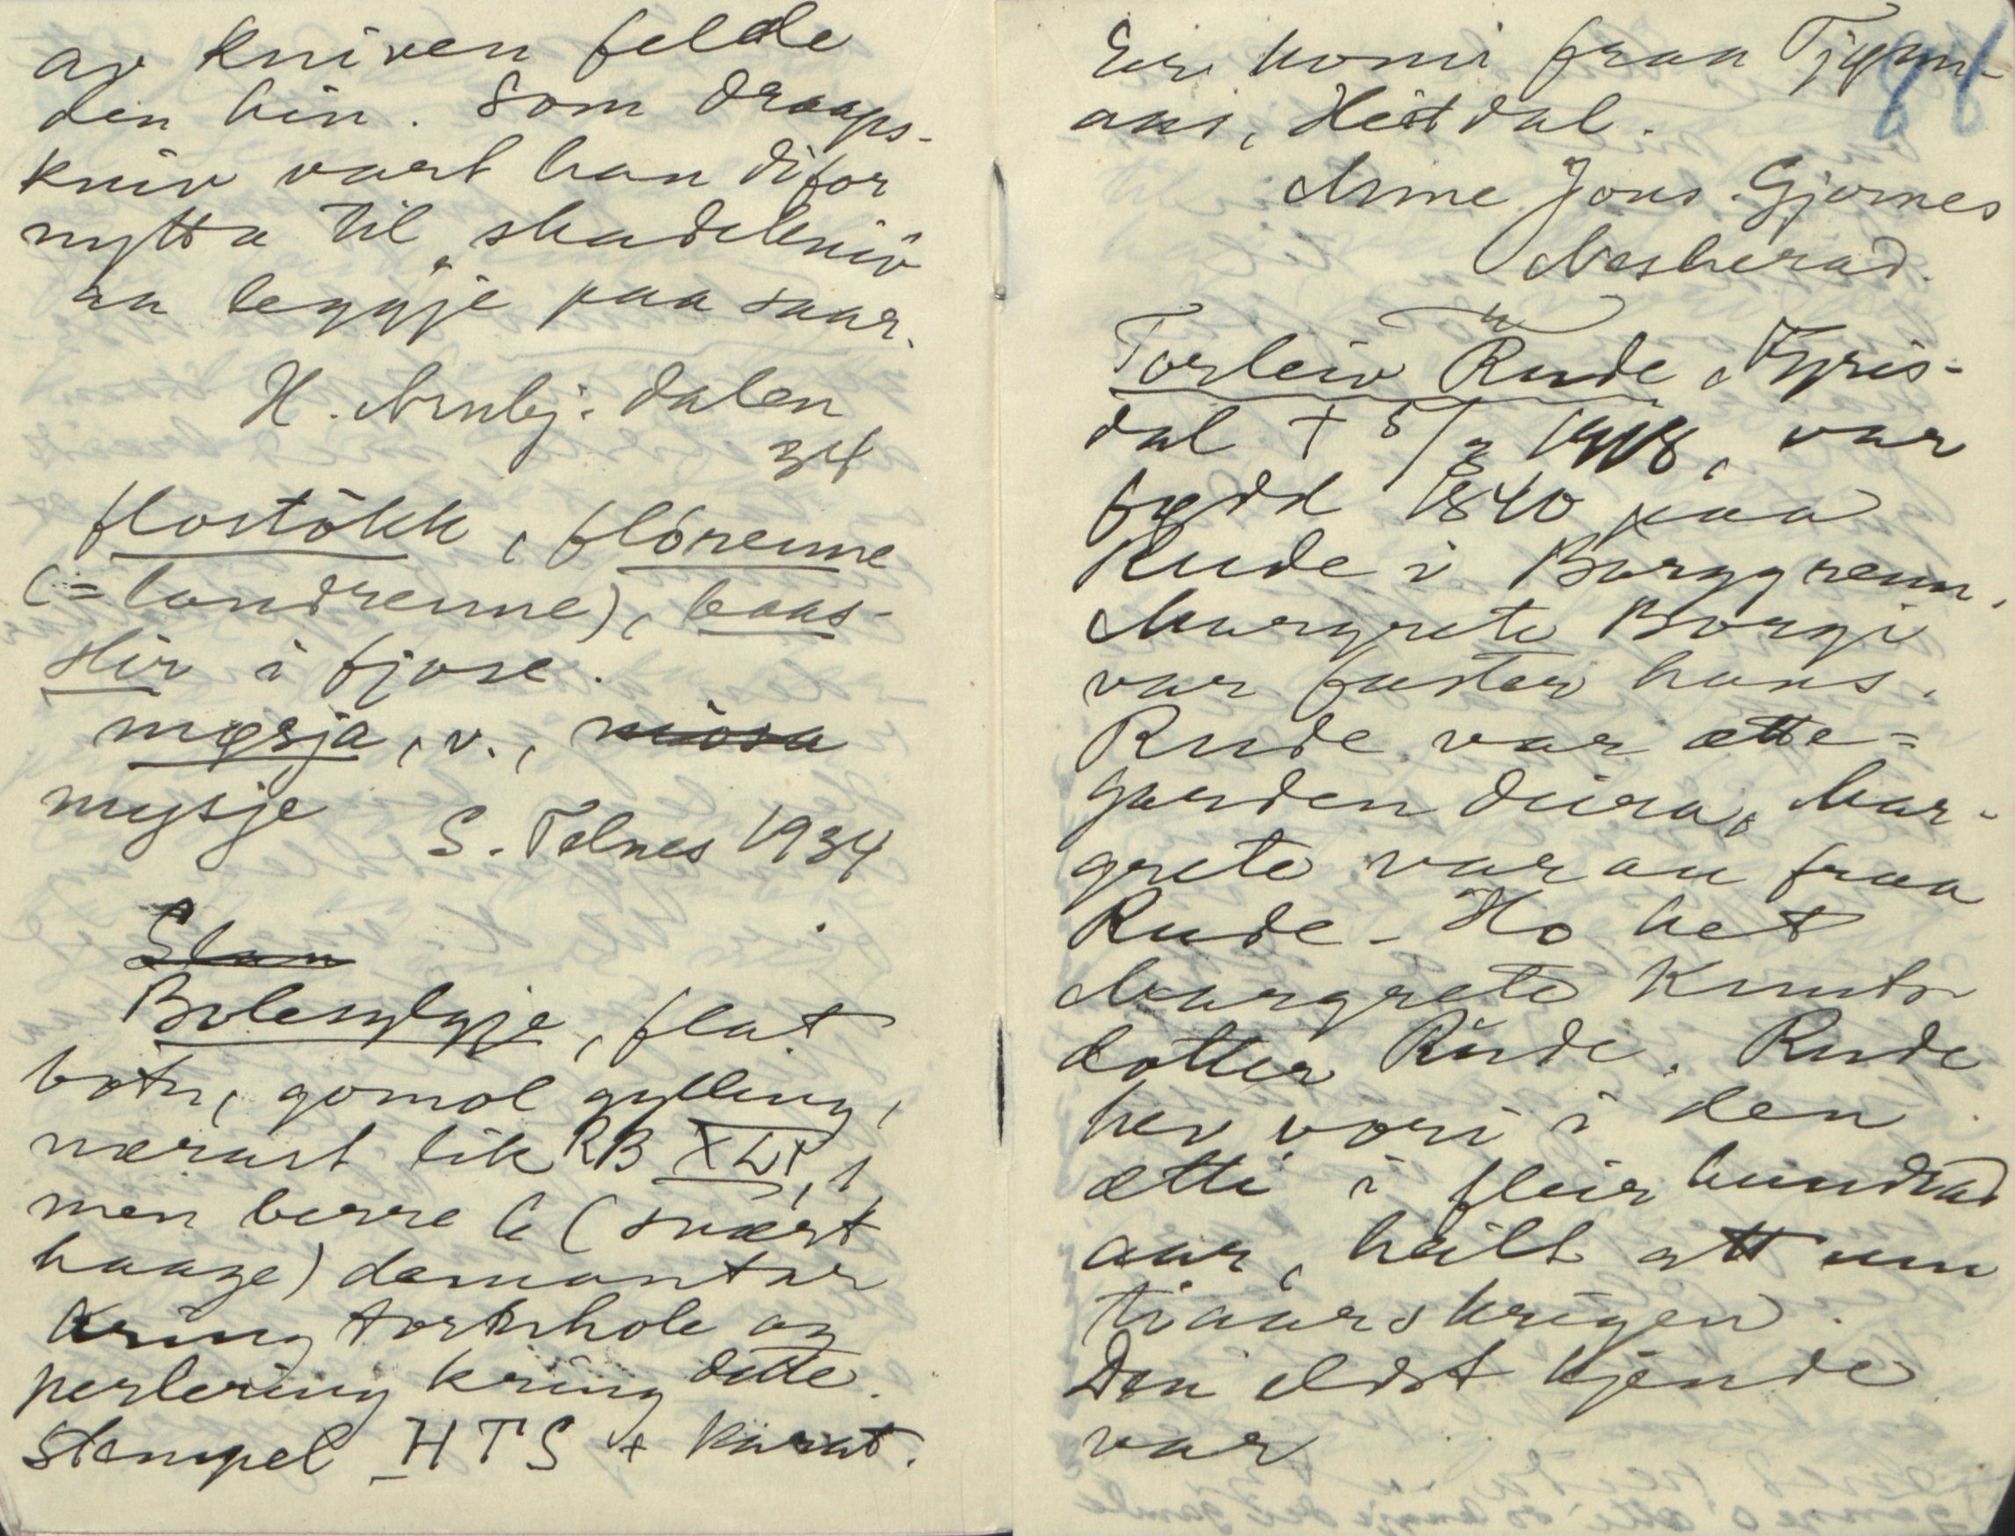 av kniven felde
den hin. Som draaps-
kniv vart han difor
nytta til skadekniv
aa leggje paa saar.
H. Arnbj. Dalen
34
flostökk, flórenne
(= landrenne), baas-
stir i fjose.
mysja, v.,
mysje
S. Telnes 1934
Bolesylgje, flat
botn, gomol gylling,
nærast lik RB XLI, 1,
men berre 6 (svært
haage) demantar
kring tornhole og
perlering kring dette.
Stempel HTS + karat.
81
Eir. komi fraa Tjønn-
aas, Hitdal.
Anne Jons. Gjernes
Nesherad.
Torleiv Rude, Fyris-
dal + 5/3 1918, var
fødd 1840 paa
Rude i Borggrenn.
Margrete Borgi
var faster hans.
Rude var ætte-
garden deira, Mar-
grete var au fraa
Rude. Ho het
Margrete Knuts-
dotter Rude. Rude
hev vori i den
ætti i fleir hundrad
aar, heilt att um
tiaarskrigen.
Den eldst kjende
var